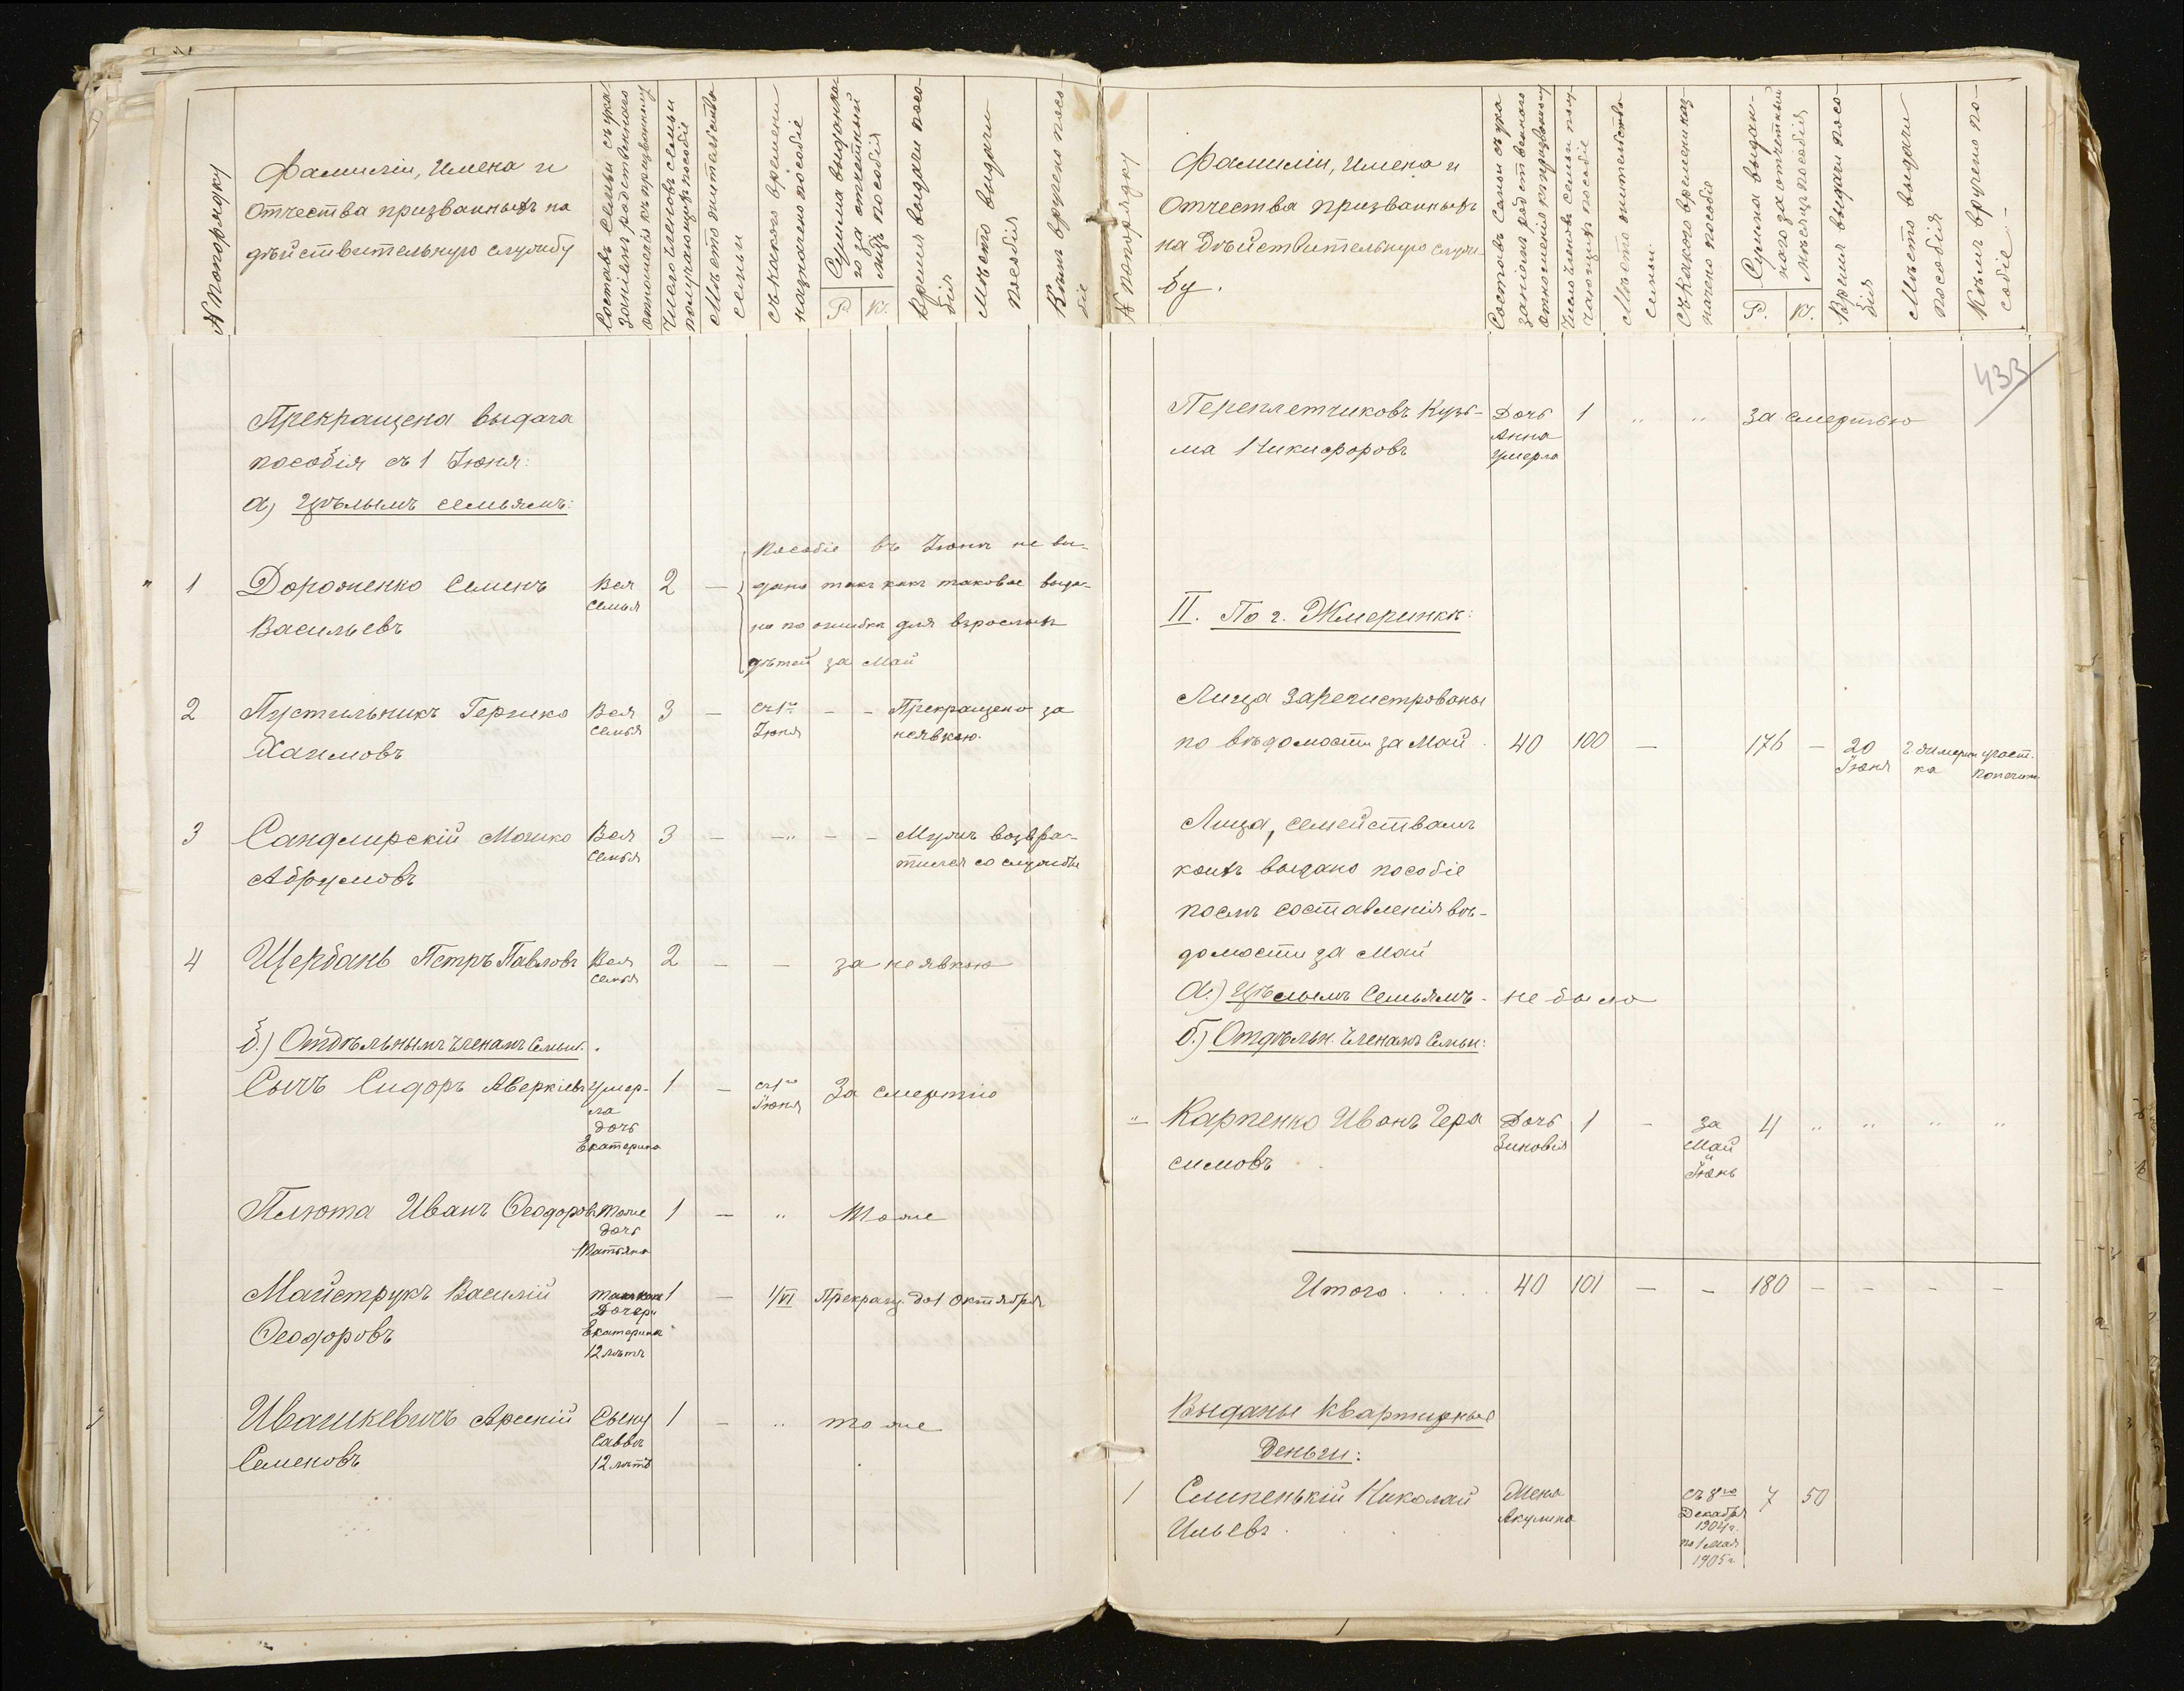 № по порядку
Фамиліи, Имена и
Отчества призванныхъ на
дѣйствительную службу
Составъ семьи съ ука-
заніемъ родственнаго
отношенія къ призванному
Число членовъ семьи
получающихъ пособіе
Мѣсто жительства
семьи
Съ какого времени
назначено пособіе
Сумма выданна-
го за отчетный
мѣсяцъ пособія
Р. К.
Время выдачи посо-
бія
Мѣсто выдачи
пособія
Кѣмъ вручено посо-
біе
Прекращена выдача
пособія съ 1 Іюня:
а) Цѣлымъ семьямъ:
1 Дороженко Семенъ Вся 2 —
Васильевъ семья
Пособіе въ Іюнѣ не вы-
дано такъ какъ таковое выда-
но по ошибкѣ для взрослыхъ
дѣтей за Май
2 Пустильникъ Гершко Вся 3 — съ 1го — — Прекращено за
Хаимовъ семья Іюня неявкою.
3 Сандлирскій Мошко Вся 3 — —"— — Мужъ возвра-
Абрумовъ семья тился со службы
4 Щербань Петръ Павловъ Вся 2 — — за неявкою
семья
б.) Отдѣльнымъ членамъ семьи.
Сычъ Сидоръ Аверкіевъ Умер- 1 — съ 1го За смертію
ла Іюня
дочь
Екатерина
Плюта Иванъ Ѳеодоровъ Тоже 1 — " Тоже
дочь
Татьяна
Майструкъ Василій 1 — 1/VI Прекращ. до 1 Октября
Ѳеодоровъ Дочери
Екатеринѣ
12 лѣтъ
Ивашкевичъ Арсеній Сыну 1 — " тоже
Семеновъ Саввѣ
12 лѣтъ
№ по порядку
Фамиліи, имена и
Отчества призванныхъ
на Дѣйствительную служ-
бу.
Составъ Семьи съ ука-
заніемъ родственнаго
отношенія къ призванному
Число членовъ семьи полу-
чающихъ пособіе
Мѣсто жительства
семьи
Съ Какого времени наз-
начено пособіе
Сумма выдан-
наго за отчетный
мѣсяцъ пособія
Р. К.
Время выдачи посо-
бія
Мѣсто выдачи
пособія
Кѣмъ вручено по-
собіе
433
Переплетчиковъ Кузь- Дочь 1 " " За смертью
ма Никифоровъ Анна
умерла
II. По г. Жмеринкѣ:
Лица зарегистрованы
по вѣдомости за Май 40 100 — 176 — 20 г. Жмерин участ.
Іюня ка попечит.
Лица, семействамъ
коихъ выдано пособіе
послѣ составленія вѣ-
домости за Май
а.) Цѣлымъ Семьямъ - не было
б.) Отдѣльн. Членамъ Семьи:
" Карпенко Иванъ Гера Дочь 1 — За 4 " " " "
симовъ Зиновія Май
и
Іюнь
Итого . . . . 40 101 — — 180 — — — —
Выданы Квартирныя
Деньги:
1 Слипенькій Николай Жена съ 8го 7 50
Ильевъ Акулина Декабря
1904 г.
по 1 Мая
1905 г.